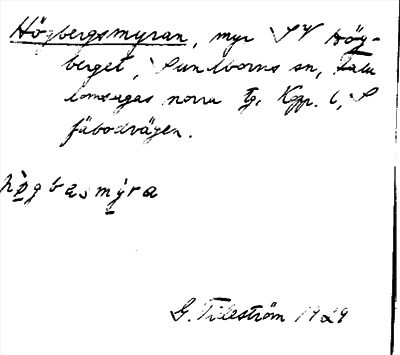 Högbergsmyran, myr SV Hög-
berget, Sundborns sn, Falu
domsagas norra tg. Kgpr. 6, S
fäbodvägen.
hø̀gbasmýra
G. Tileström 1929